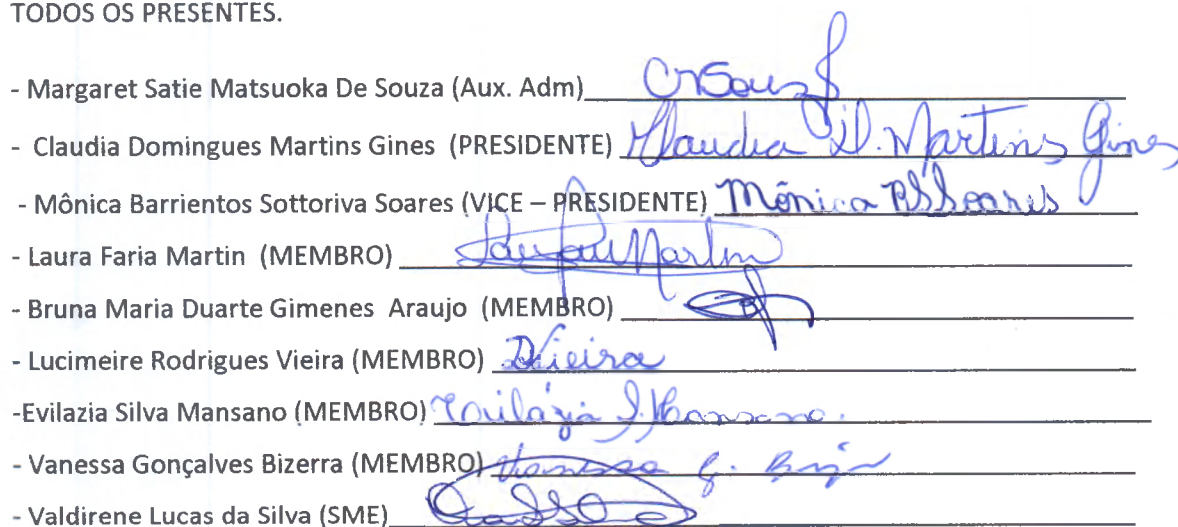 TODOS OS PRESENTES.
- Margaret Satie Matsuoka De Souza (Aux. Adm) MSouza
- Claudia Domingues Martins Gines (PRESIDENTE) Claudia D. Martins Gines
- Mônica Barrientos Sottoriva Soares (VICE – PRESIDENTE) Mônica BSSoares
- Laura Faria Martin (MEMBRO) Martin
- Bruna Maria Duarte Gimenes Araujo (MEMBRO)
- Lucimeire Rodrigues Vieira (MEMBRO) Vieira
-Evilazia Silva Mansano (MEMBRO) Evilázia S. Mansano.
- Vanessa Gonçalves Bizerra (MEMBRO) Vanessa G.
- Valdirene Lucas da Silva (SME)